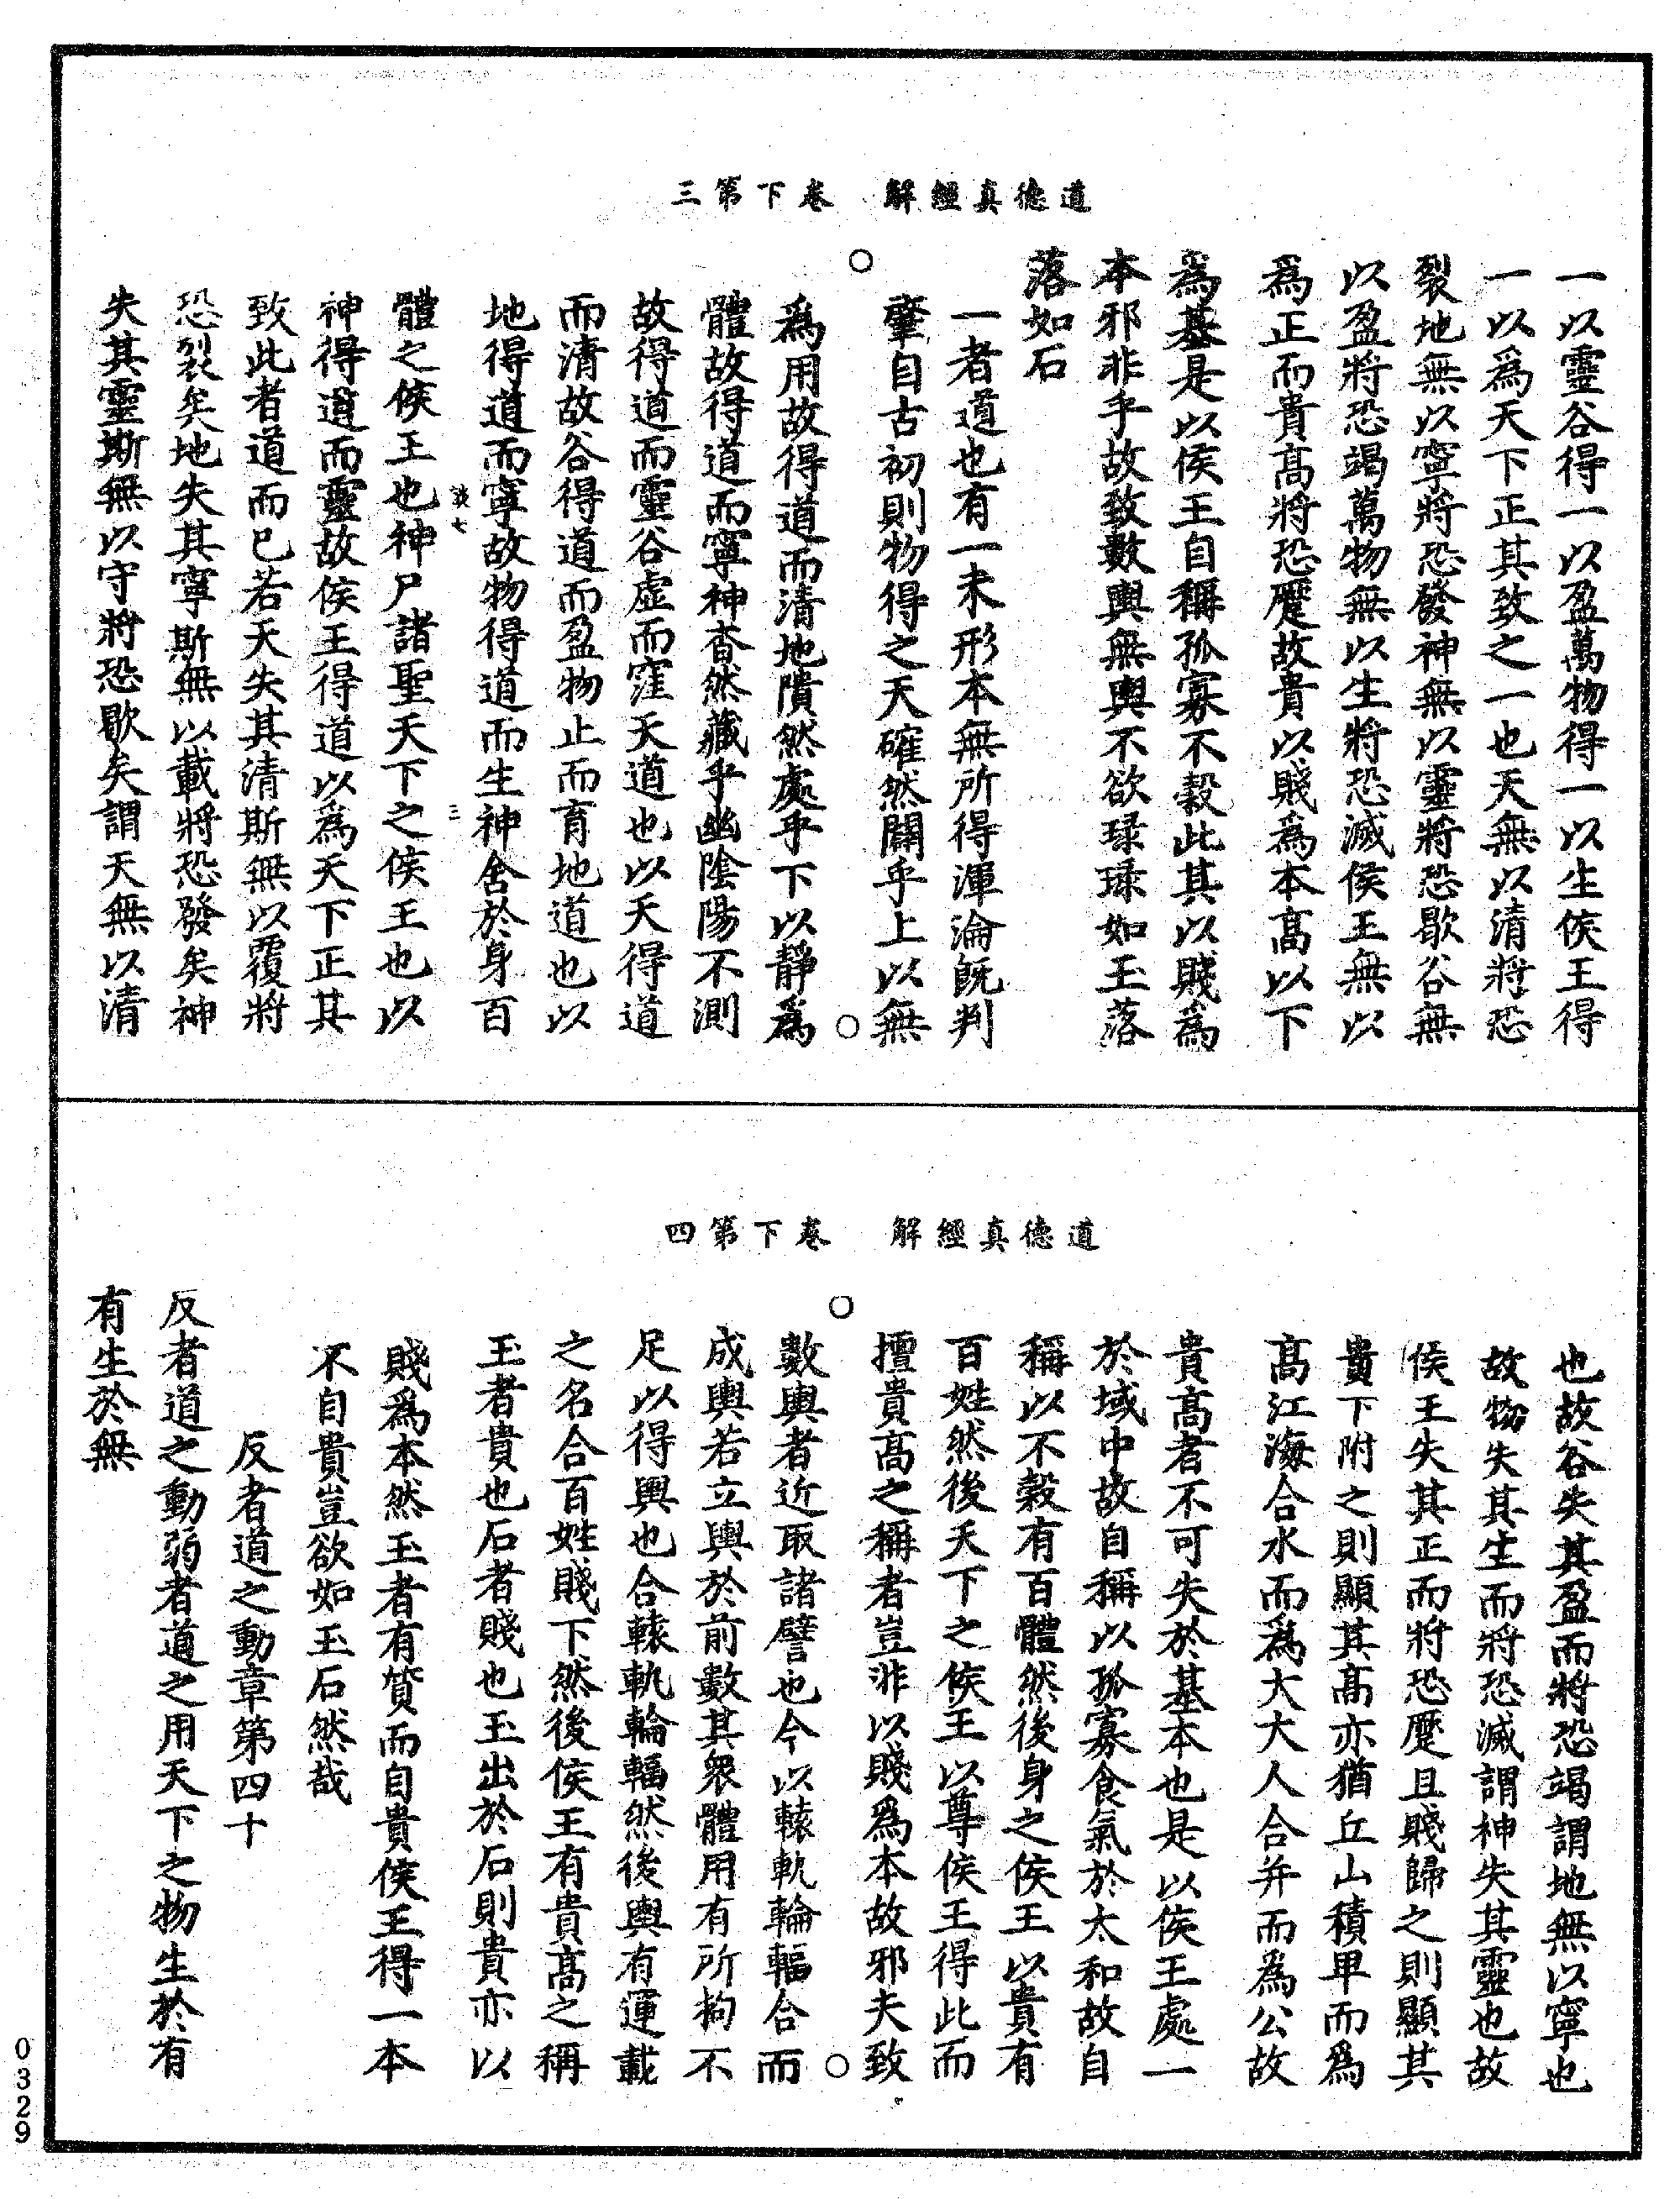 道德真經解　卷下第三
一以靈谷得一以盈萬物得一以生侯王得
一以爲天下正其致之一也天無以清將恐
裂地無以寧將恐發神無以靈將恐歇谷無
以盈將恐竭萬物無以生將恐滅侯王無以
爲正而貴高將恐蹷故貴以賤爲本高以下
爲基是以侯王自稱孤寡不穀此其以賤爲
本邪非乎故致數輿無輿不欲琭琭如玉落
落如石
一者道也有一未形本無所得渾淪旣判
肇自古初則物得之天確然闢乎上以無
爲用故得道而清地隤然處乎下以靜爲
體故得道而寧神杳然藏乎幽陰陽不測
故得道而靈谷虛而窪天道也以天得道
而清故谷得道而盈物止而育地道也以
地得道而寧故物得道而生神舍於身百
談七
三
體之侯王也神尸諸聖天下之侯王也以
神得道而靈故侯王得道以爲天下正其
致此者道而已若天失其清斯無以覆將
恐裂矣地失其寧斯無以載將恐發矣神
失其靈斯無以守將恐歇矣謂天無以清
道德真經解　卷下第四
也故谷失其盈而將恐竭謂地無以寧也
故物失其生而將恐滅謂神失其靈也故
侯王失其正而將恐蹷且賤歸之則顯其
貴下附之則顯其高亦猶丘山積卑而爲
高江海合水而爲大大人合并而爲公故
貴高者不可失於基本也是以侯王處一
於域中故自稱以孤寡食氣於太和故自
稱以不穀有百體然後身之侯王以貴有
百姓然後天下之侯王以尊侯王得此而
擅貴高之稱者豈非以賤爲本故邪夫致
數輿者近取諸譬也今以轅軌輪輻合而
成輿若立輿於前數其衆體用有所拘不
足以得輿也合轅軌輪輻然後輿有運載
之名合百姓賤下然後侯王有貴高之稱
玉者貴也石者賤也玉出於石則貴亦以
賤爲本然玉者有質而自貴侯王得一本
不自貴豈欲如玉石然哉
反者道之動章第四十
反者道之動弱者道之用天下之物生於有
有生於無
0329